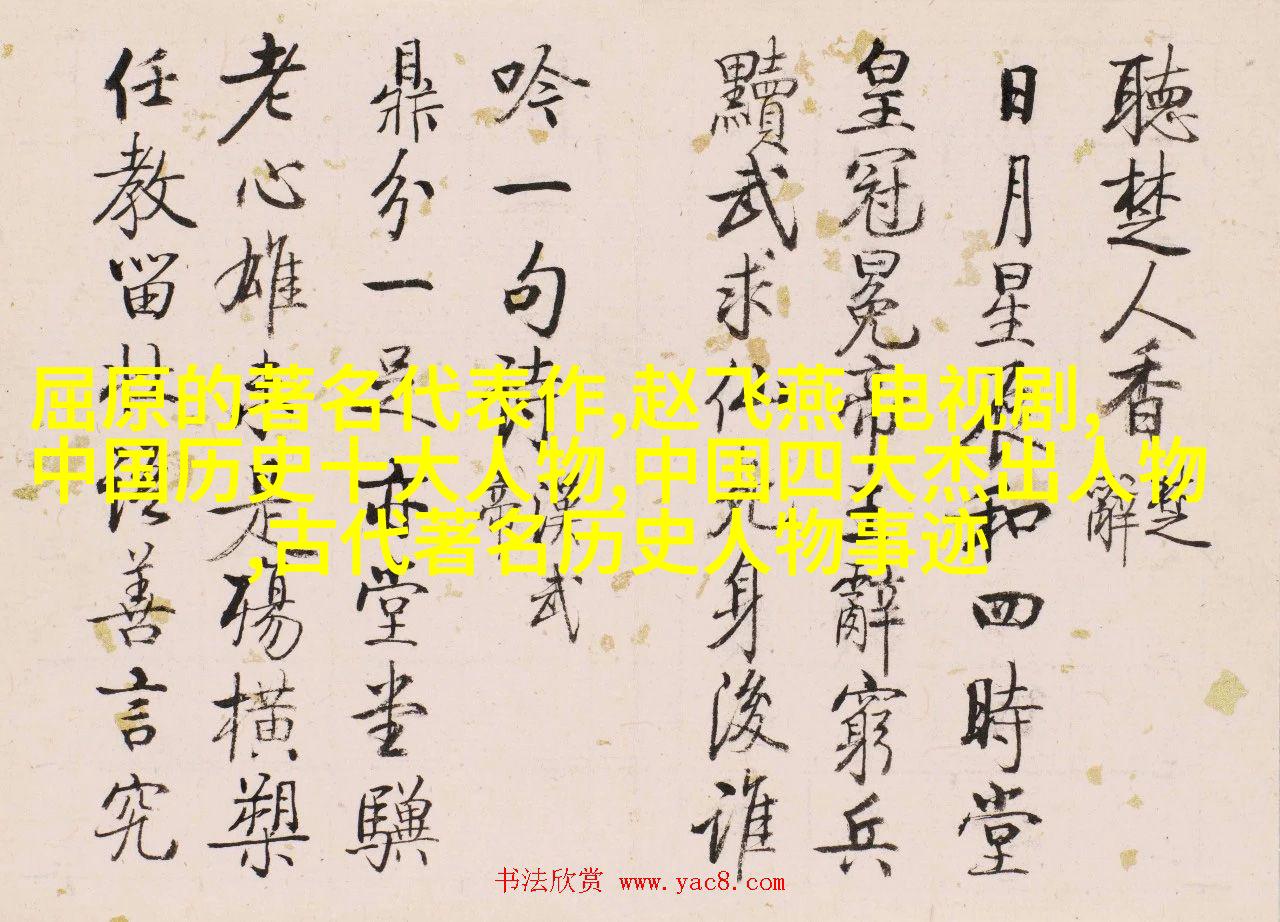 聽楚人香 楚辭
日月星辰和四時堂
皇冠冕帝王辭窮兵
黷武求仙身後誰
吟一句詩 漢武帝
鼎分一足亦堂堂驥
老心雄未是殤橫槊
任教留善言究
屈原的著名代表作,赵飞燕 电视剧,
中国历史十大人物,中国四大杰出人物
,古代著名历史人物事迹
书法欣赏 www.yac8.com